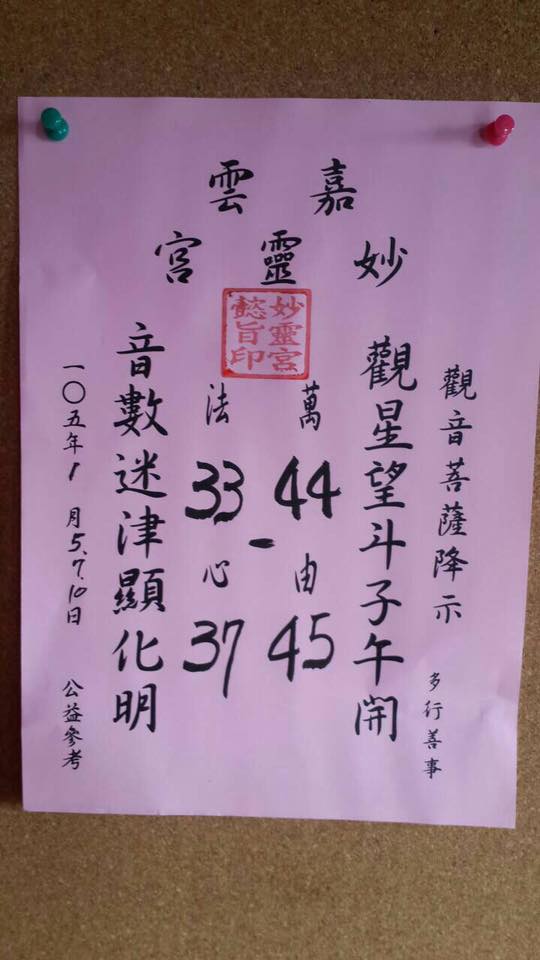 嘉雲
妙靈宮
妙靈宮
懿旨印
觀音菩薩降示
多行善事
觀星望斗子午開
萬 44 由 45
-
法 33 心 37
音數迷津顯化明
一〇五年1月5.7.10日
公益參考